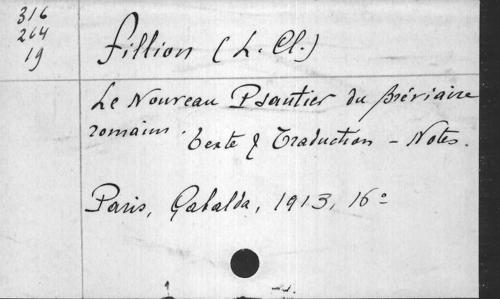 316
264
19
Fillion (L. Cl.)
Le Nouveau Psautier du Bréviaire
romain. Texte & Traduction - Notes.
Paris, Gabalda, 1913, 16°